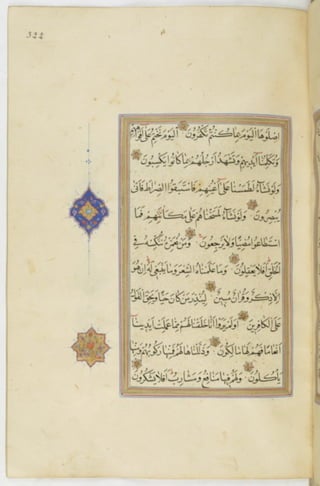 322
اصلوها اليوم بما كنتم تكفرون اليوم نختم على افواههم
وتكلمنا ايديهم وتشهد ارجلهم بما كانوا يكسبون
ولو نشاء لطمسنا على اعينهم فاستبقوا الصراط فانى
يبصرون ولو نشاء لمسخناهم على مكانتهم فما
استطاعوا مضيا ولا يرجعون ومن نعمره ننكسه في
الخلق افلا يعقلون وما علمناه الشعر وما ينبغي له ان هو
الا ذكر وقران مبين لينذر من كان حيا ويحق القول
على الكافرين اولم يروا انا خلقنا لهم مما عملت ايدينا
انعاما فهم لها مالكون وذللناها لهم فمنها ركوبهم ومنها
ياكلون ولهم فيها منافع ومشارب افلا يشكرون